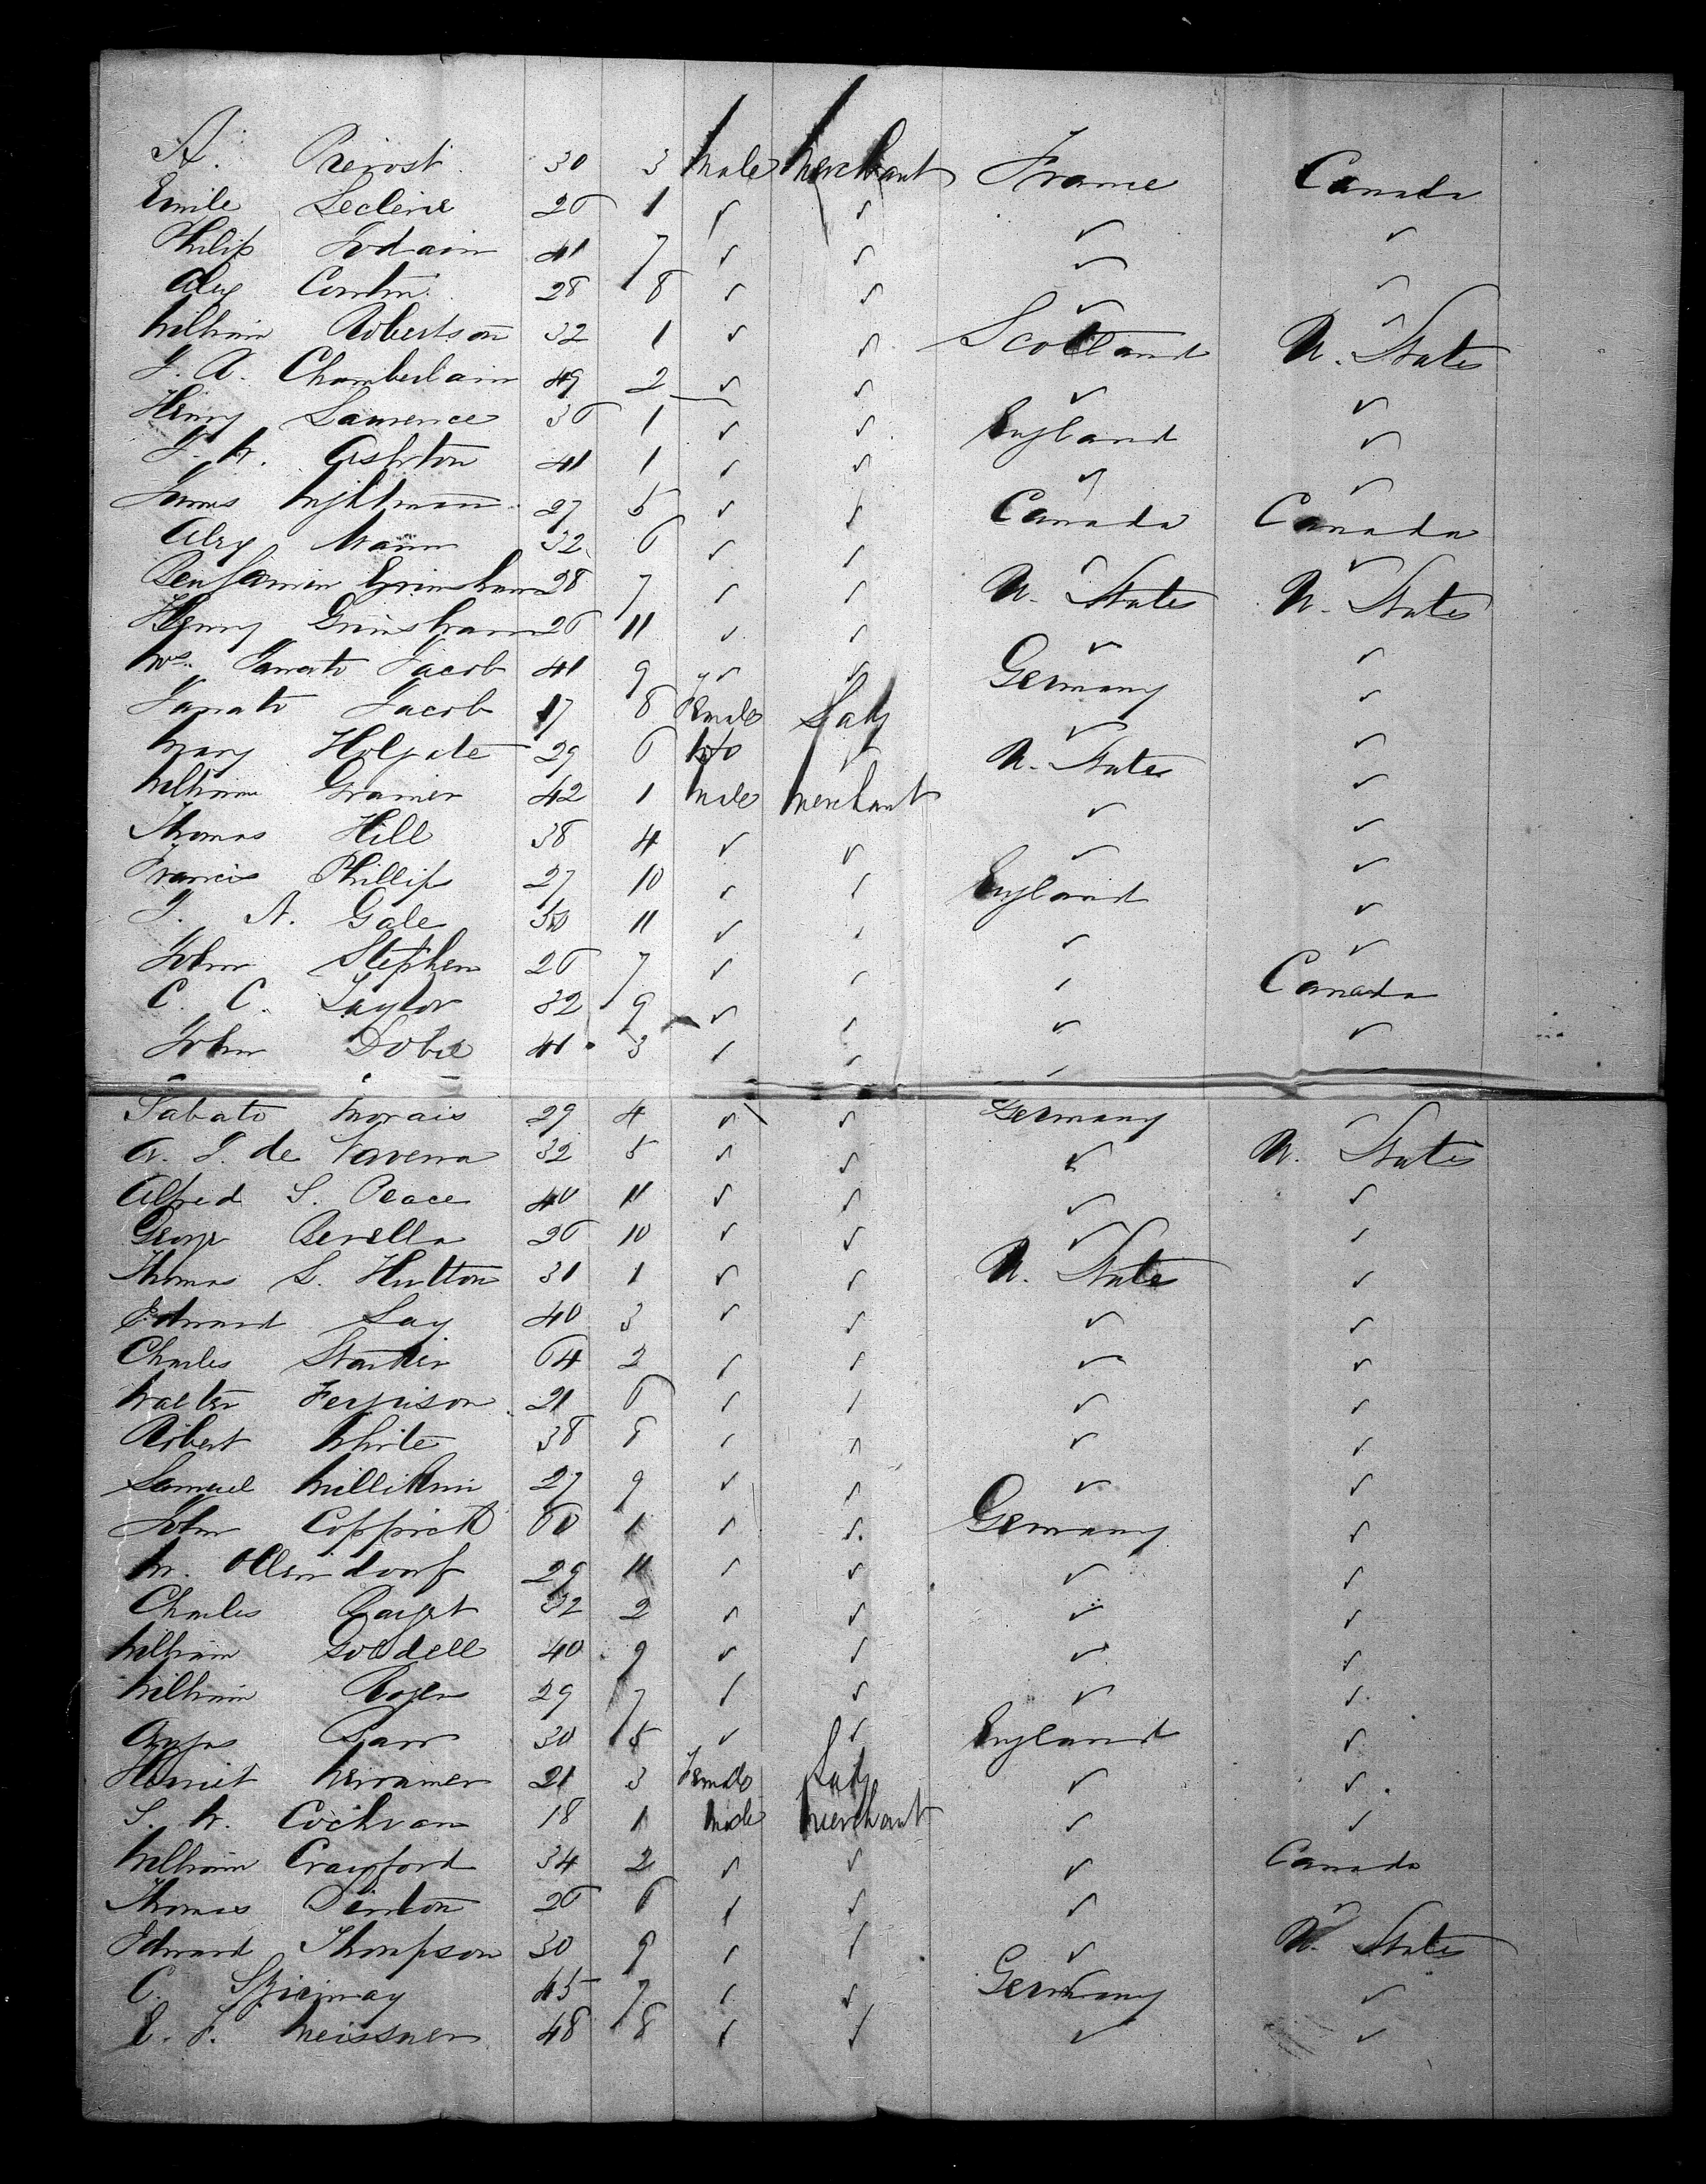 A. Prevost 30 3 Male Merchant France Canada
Emile Leclerc 26 1 ✓ ✓ ✓ ✓
Philip Jodain 41 7 ✓ ✓ ✓ ✓
Alex 28 8 ✓ ✓ ✓ ✓
William Robertson 32 1 ✓ ✓ Scotland U. States
J. A. Chamberlain 49 2 ✓ ✓ ✓ ✓
Henry Lawrence 36 1 ✓ ✓ England ✓
J. W. Ashton 41 1 ✓ ✓ ✓ ✓
James Wightman 27 5 ✓ ✓ Canada Canada
Alex Mann 32 6 ✓ ✓ ✓ ✓
Benjamin Grimshaw 28 7 ✓ ✓ U. States U. States
Henry Grimshaw 26 11 ✓ ✓ ✓ ✓
Jacob 41 9 ✓ ✓ Germany ✓
Jacob 17 8 Female Lady ✓ ✓
Mary Holgate 29 6 ✓ U. States ✓
William Gramer 42 1 Male Merchant ✓ ✓
Thomas Hill 38 4 ✓ ✓ ✓ ✓
Francis Phillips 27 10 ✓ ✓ England ✓
J. A. Gale 11 ✓ ✓ ✓ ✓
John Stephen 26 7 ✓ ✓ ✓ Canada
C. C. Taylor 32 9 ✓ ✓ ✓ ✓
John Dobie 41 3 ✓ ✓ ✓ ✓
Sabato Morais 29 4 ✓ ✓ Germany ✓
A. J. de Taverra 32 5 ✓ ✓ ✓ U. States
Alfred S. Peace 40 11 ✓ ✓ ✓ ✓
George Berella 26 10 ✓ ✓ ✓ ✓
Thomas L. Hutton 31 1 ✓ ✓ U. States ✓
Edward Lay 40 3 ✓ ✓ ✓ ✓
Charles 64 2 ✓ ✓ ✓ ✓
Walter Ferguison 21 6 ✓ ✓ ✓ ✓
Robert White 38 ✓ ✓ ✓ ✓
Samuel Millikin 27 9 ✓ ✓ ✓ ✓
John Coppick 60 1 ✓ ✓ Germany ✓
M. Ollendorf 29 11 ✓ ✓ ✓ ✓
Charles 32 2 ✓ ✓ ✓ ✓
William Goodell 40 9 ✓ ✓ ✓ ✓
William Rogers 29 7 ✓ ✓ ✓ ✓
30 5 ✓ ✓ England ✓
Harriet 21 3 Female Lady ✓ ✓
S. W. Cochran 18 1 Male Merchant ✓ ✓
William Crayford 34 2 ✓ ✓ ✓ Canada
Thomas Denton 26 6 ✓ ✓ ✓ ✓
Edward Thompson 30 9 ✓ ✓ ✓ U. States
C. 45 7 ✓ ✓ Germany ✓
E. F. Meissner 48 8 ✓ ✓ ✓ ✓